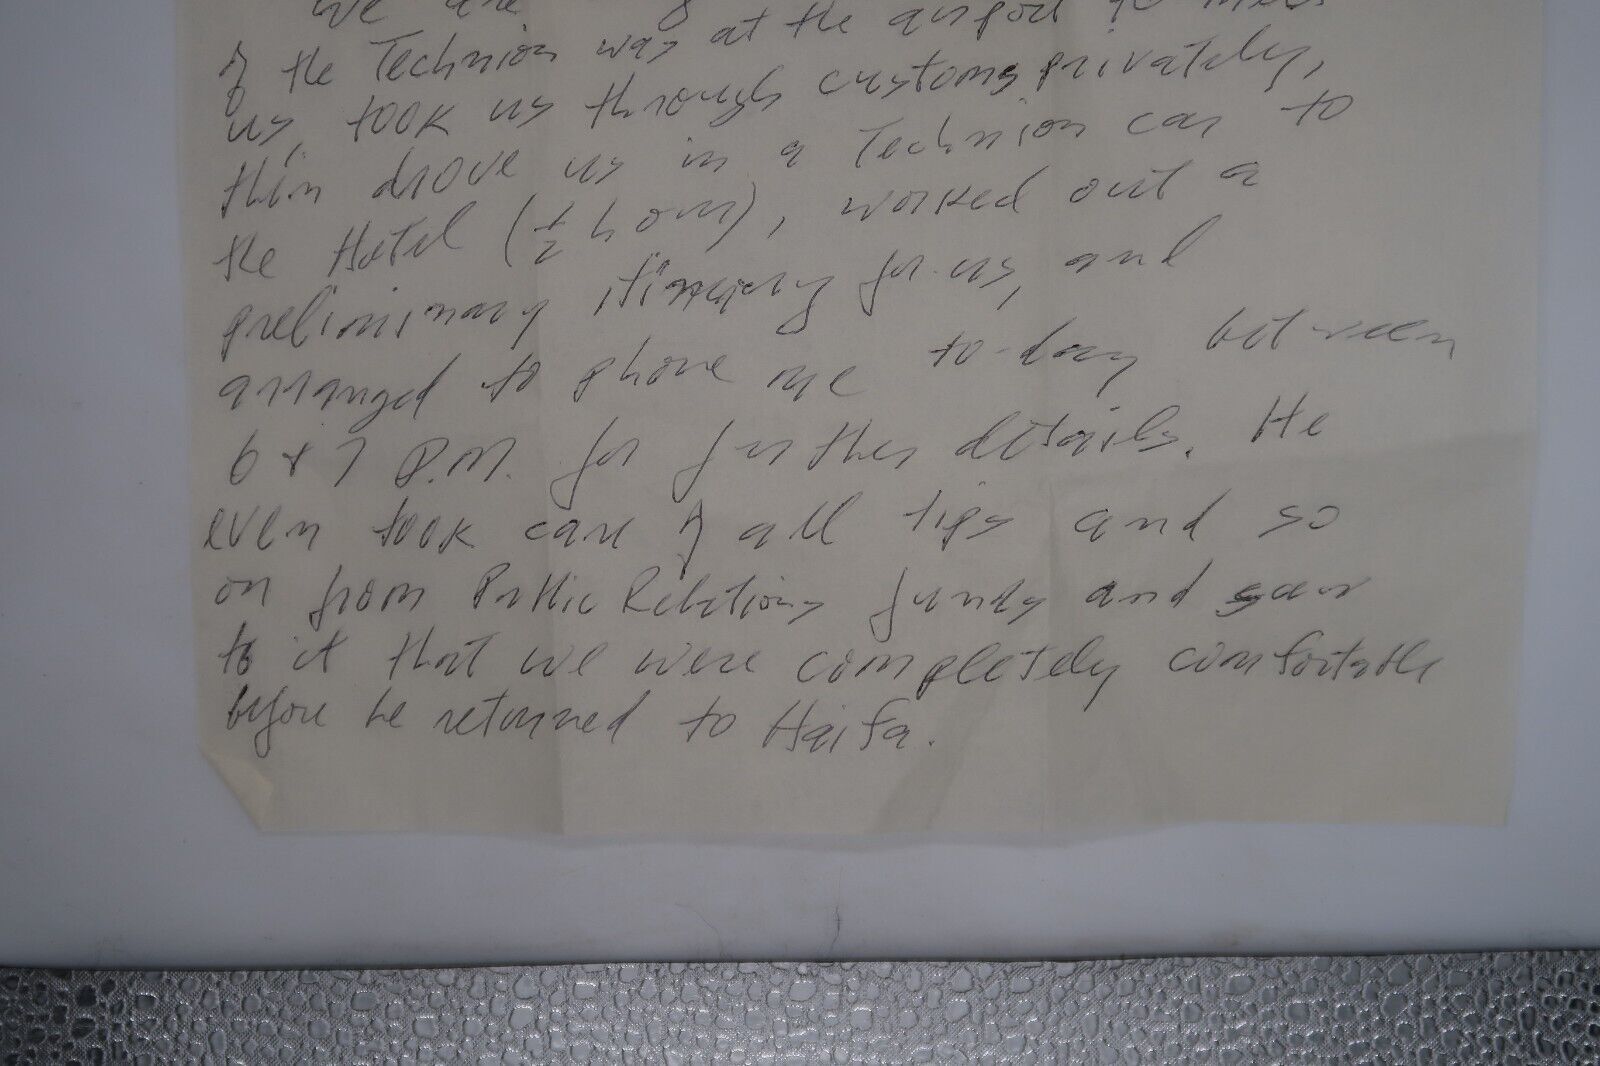 we are
of the Technion was at the airport to meet
us, took us through customs privately,
then drove us in a Technion car to
the Hotel (½ hour), worked out a
preliminary itinerary for us, and
arranged to phone me to-day between
6 & 7 P.M. for further details. He
even took care of all tips and so
on from Public Relations funds and saw
to it that we were completely comfortable
before he returned to Haifa.